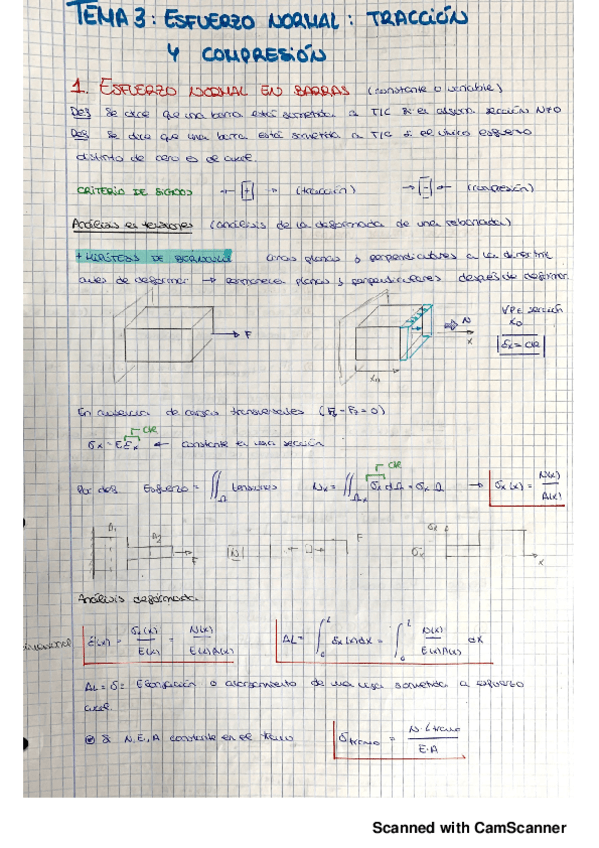 TEMA 3: ESFUERZO NORMAL: TRACCIÓN
Y COMPRESIÓN
1. ESFUERZO NORMAL EN BARRAS (constante o variable)
Def Se dice que una barra está sometida a T/C si en alguna sección N≠0
Def Se dice que una barra está sometida a T/C si el único esfuerzo
distinto de cero es el axil.
CRITERIO DE SIGNOS ←[+]→ (tracción) →[-]← (compresión)
Análisis en tensiones (análisis de la deformada de una rebanada)
+ HIPÓTESIS DE BERNOULLI planas y perpendiculares a la directriz
antes de deformar → permanecen planas y perpendiculares después de deformar
F
N
x
x₀
sección
x₀
εx = cte
En ausencia de cargas transversales
cte
σx = E εx ← constante en una sección
cte
Por def. Esfuerzo = ∬Ω tensiones Nx = ∬Ωx σx dΩ = σx Ω → σx(x) = N(x)/A(x)
A₁
A₂
F
N
F
σx
x
Análisis deformada
ε(x) = σx(x)/E(x) = N(x)/E(x)A(x)
ΔL = ∫₀ᴸ εx(x)dx = ∫₀ᴸ N(x)/E(x)A(x) dx
ΔL = δ = Elongación o alargamiento de una viga sometida a esfuerzo
axil.
Si N, E, A constante en el tramo δtramo = N·Ltramo/E·A
Scanned with CamScanner